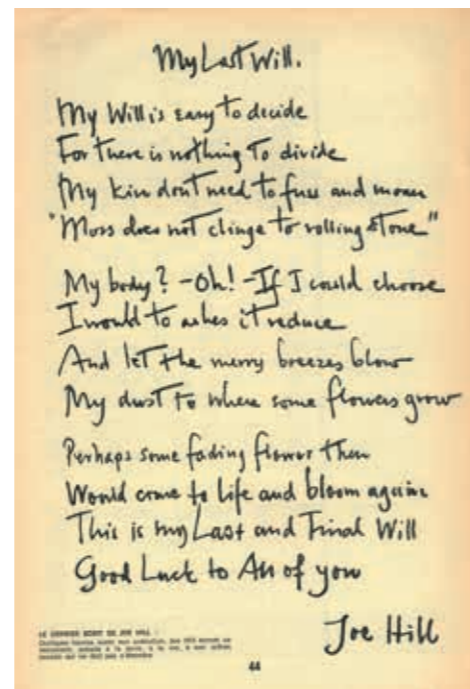 My Last Will.
My Will is easy to decide
For there is nothing To divide
My kin dont need to fuss and moan
"Moss does not clinge to rolling stone"
My body? -Oh! -If I could choose
I would to ashes it reduce
And let the merry breezes blow
My dust to where some flowers grow
Perhaps some fading flower then
Would come to life and bloom again
This is my Last and Final Will
Good Luck to All of you
Joe Hill
LE DERNIER ECRIT DE JOE HILL :
44